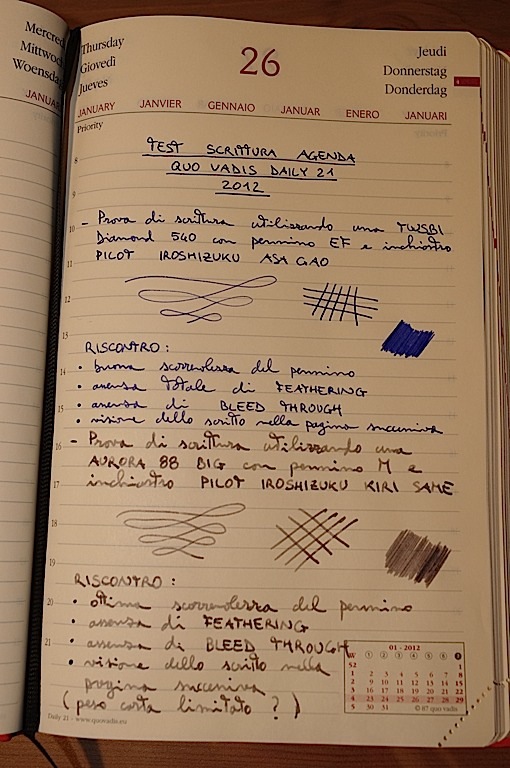 Mercred
Mittwoc
Woensda
JANUAR
Thursday
Giovedì
Jueves
26
Jeudi
Donnerstag
Donderdag
JANUARY JANVIER GENNAIO JANUAR ENERO JANUARI
Priority
8
TEST SCRITTURA AGENDA
QUO VADIS DAILY 21
9
2012
10
- Prova di scrittura utilizzando una TWSBI
Diamond 540 con pennino EF e inchiostro
11
PILOT IROSHIZUKU ASA GAO
12
13
RISCONTRO:
14
• buona scorrevolezza del pennino
• assenza totale di FEATHERING
15
• assenza di BLEED THROUGH
• visione dello scritto nella pagina successiva
16
- Prova di scrittura utilizzando una
AURORA 88 BIG con pennino M e
17
inchiostro PILOT IROSHIZUKU KIRI SAME
18
19
RISCONTRO:
20
• ottima scorrevolezza del pennino
• assenza di FEATHERING
21
• assenza di BLEED THROUGH
• visione dello scritto nella
pagina successiva
(peso carta limitato?)
01 - 2012
W 1 2 3 4 5 6 7
52 1
1 2 3 4 5 6 7 8
2 9 10 11 12 13 14 15
3 16 17 18 19 20 21 22
4 23 24 25 26 27 28 29
5 30 31
Daily 21 – www.quovadis.eu
© 87 quo vadis